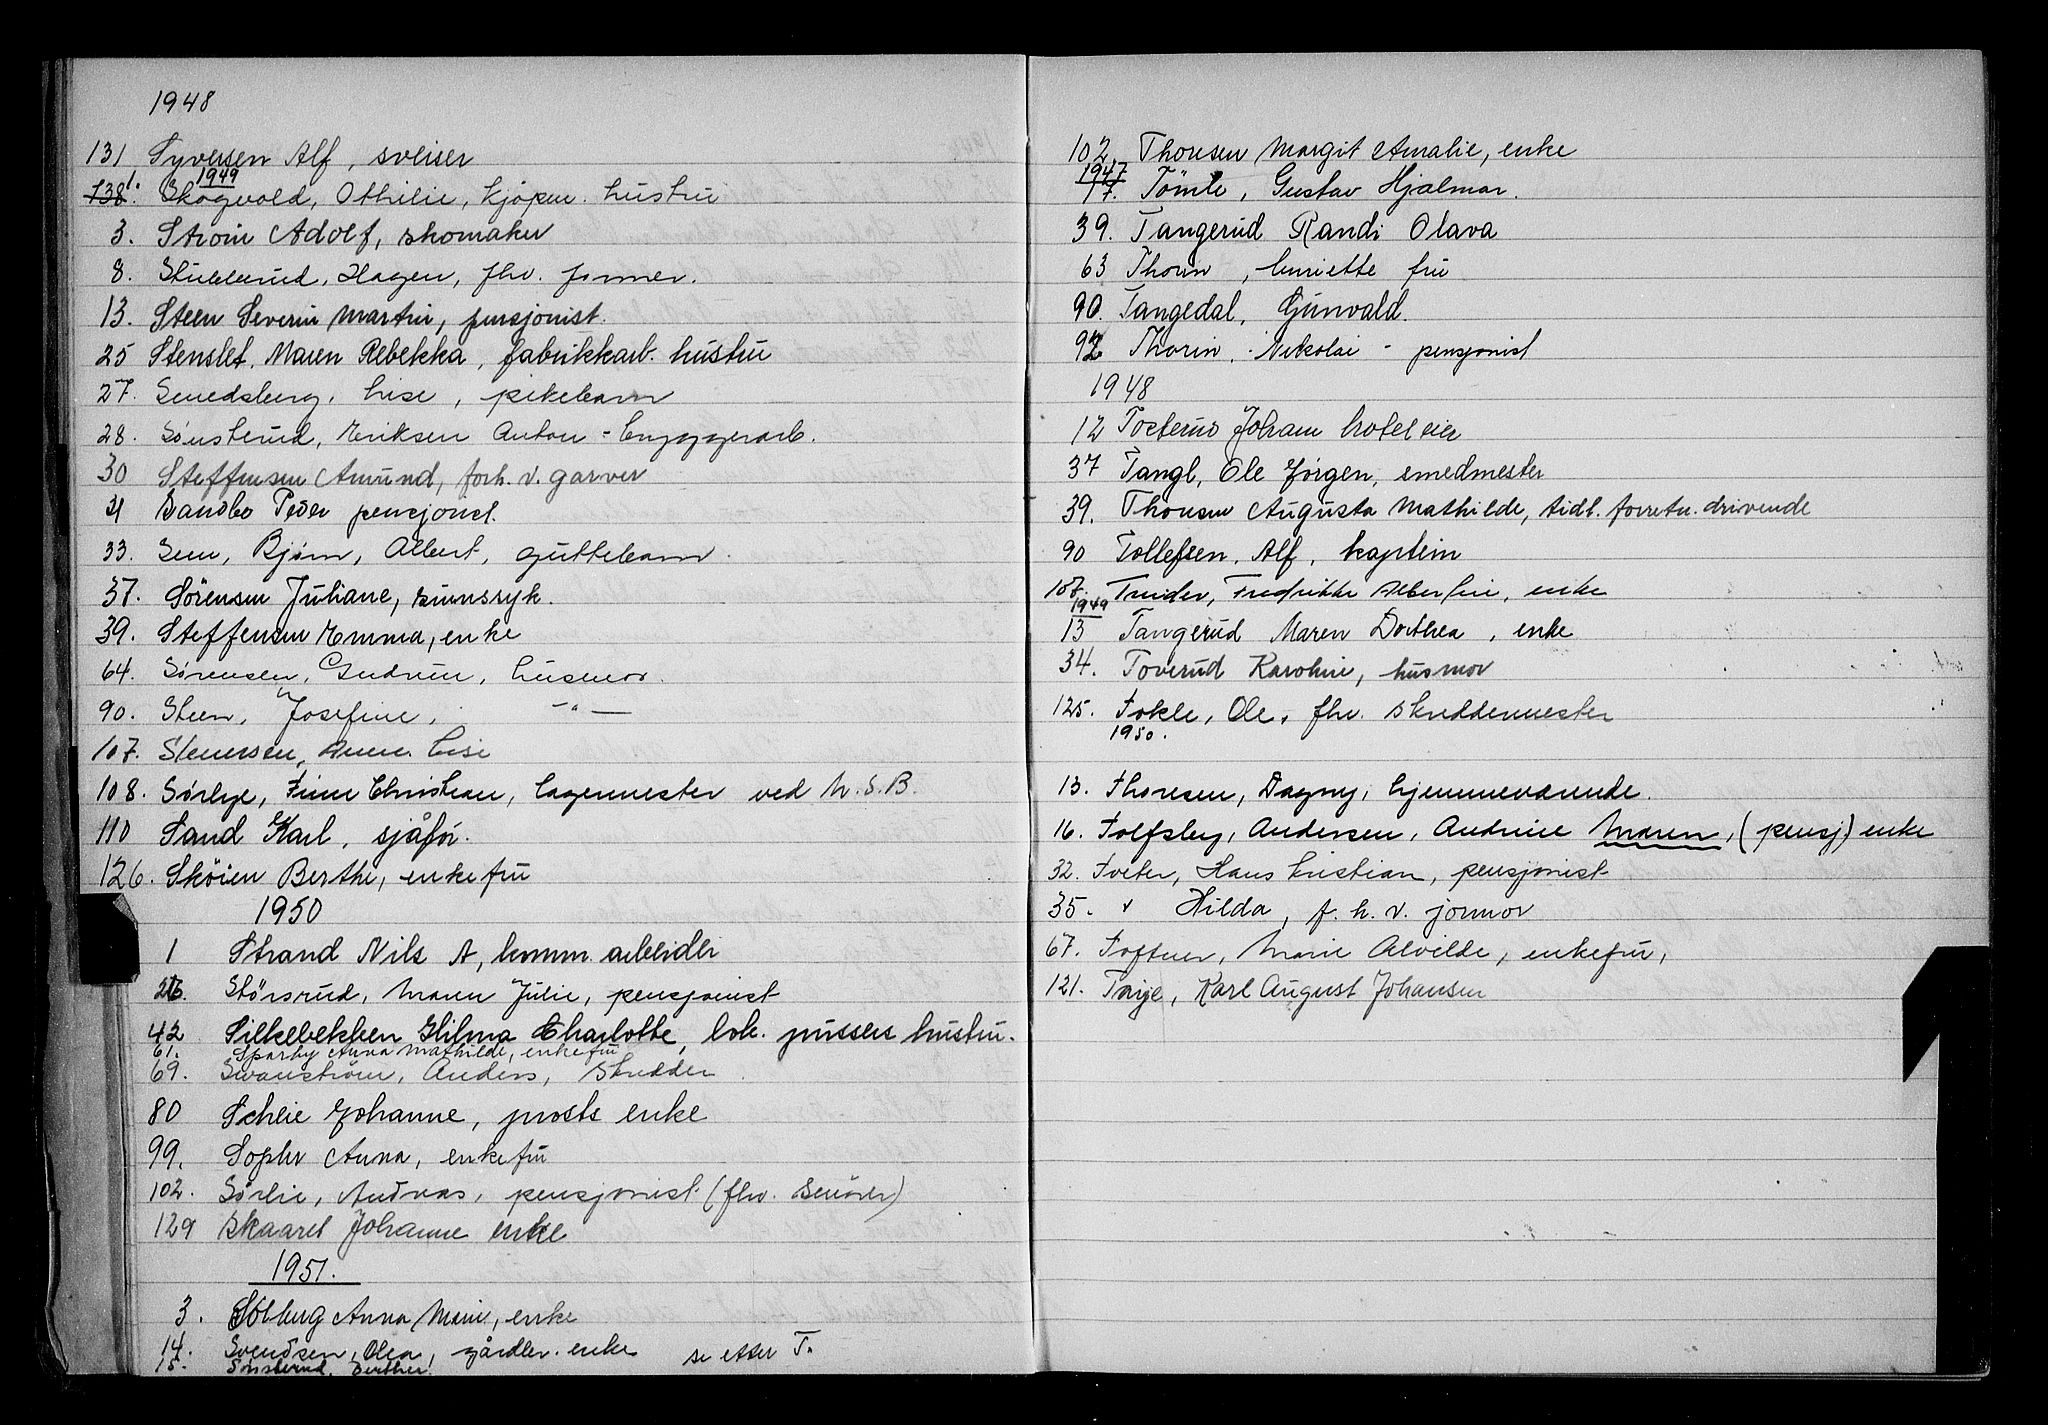 1948
131 Syversen Alf, sveiser
1949
138 1. Skogvold, Othilie, kjøpm. hustru
3. Strøm Adolf, skomaker
8. Stubberud, Hagen, fhv. former.
13. Steen Severin Martin, pensjonist.
25 Stenslet, Maren Rebekka, fabrikkarb. hustru
27. Smedsberg, Lise, pikebarn
28. Sønsterud, Eriksen Anton - bryggerarb.
30 Steffensen Amund, forh. v. garver
31 Sandbo Peder pensjonst.
33. Sem, Bjørn, Albert, guttebarn.
37. Sörensen Juliane, sinnssyk.
39. Steffensen Emma, enke
64. Sørensen, Gudrun, husmor.
90. Steen, Josefine, -"-
107. Stenersen, Anne Lise
108. Sørlye, Finn Christian, lagermester ved N.S.B.
110 Sand Karl, sjåför.
126. Sköien Berthe, enkefru
1950
1 Strand Nils A, komm. arbeider
26. Störsrud, Maren Julie, pensjonist
42 Silkebekken Hilma Charlotte, lok. pussers hustru.
61. Sparby Anna Mathilde, enkefru
69. Swanström, Anders, Skredder
80 Schlie Johanne, prosts enke
99. Sophr Anna, enkefru
102. Sørlie, Andreas, pensjonist (fhv. )
129 Skaaret Johanne enke
1951.
3. Solberg Anna Marie, enke
14. Svendsen, Olea, gårdbr. enke se etter T.
15. Sønsterud, Berther.
102. Thoresen Margit Amalie, enke
1947
17. Tömte, Gustav Hjalmar.
39. Tangerud Randi Olava
63 Thorin, Henriette fru
90. Tangedal, Gunvald.
92 Thorin, Nikolai - pensjonist
1948
12 Tosterud Johan hoteleier
37 Tangl, Ole Jörgen, smedmester
39. Thoresen Augusta Mathilde, tidl. forretn. drivende
90 Tollefsen, Alf, kaptein
107. Fredrikke Albertine, enke
1949
13 Tangerud Maren Dorthea, enke
34. Toverud Karoline, husmor
125. Tokle, Ole, fhv. Skreddermester
1950.
13. Thoresen, Dagny, hjemmeværende.
16. Tolfsby, Andersen, Andrine Maren, (pensj) enke
32. Tveter, Hans Kristian, pensjonist
35. " Hilda, f. h. v. jormor
67. Toftner, Marie Alvilde, enkefru,
121. Terje, Karl August Johansen